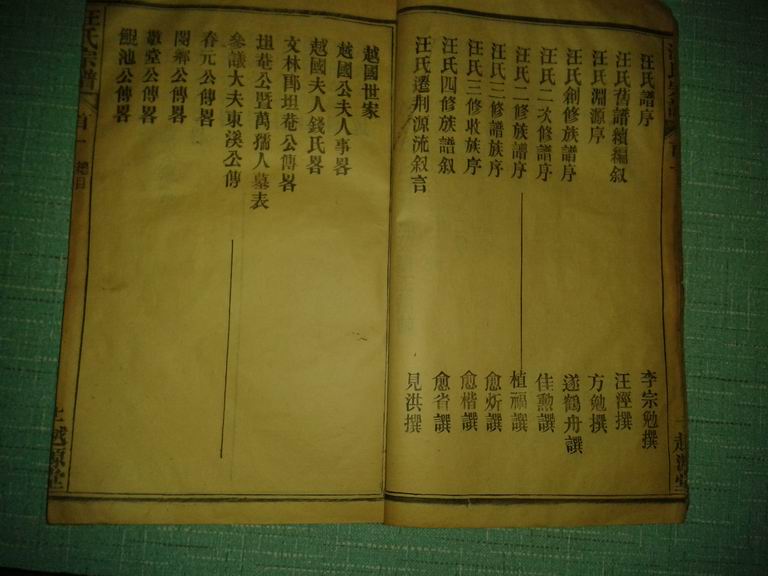 汪氏譜序 李宗勉撰
汪氏舊譜續編叙 汪澤撰
汪氏淵源序 方勉撰
汪氏創修族譜序 遂鶴舟譔
汪氏二次修譜序 佳勲譔
汪氏二修族譜序 植福譔
汪氏三修譜族序 愈炘譔
汪氏三修收族序 愈楷譔
汪氏四修族譜叙 愈省譔
汪氏遷荆源流叙言 見洪撰
越國世家
越國公夫人事畧
越國夫人錢氏畧
文林郎坦菴公傳畧
坦菴公暨萬孺人墓表
參議大夫東溪公傳
春元公傳畧
閿鄉公傳畧
敬堂公傳畧
鯤池公傳畧
汪氏宗譜 首一 總目 越源堂